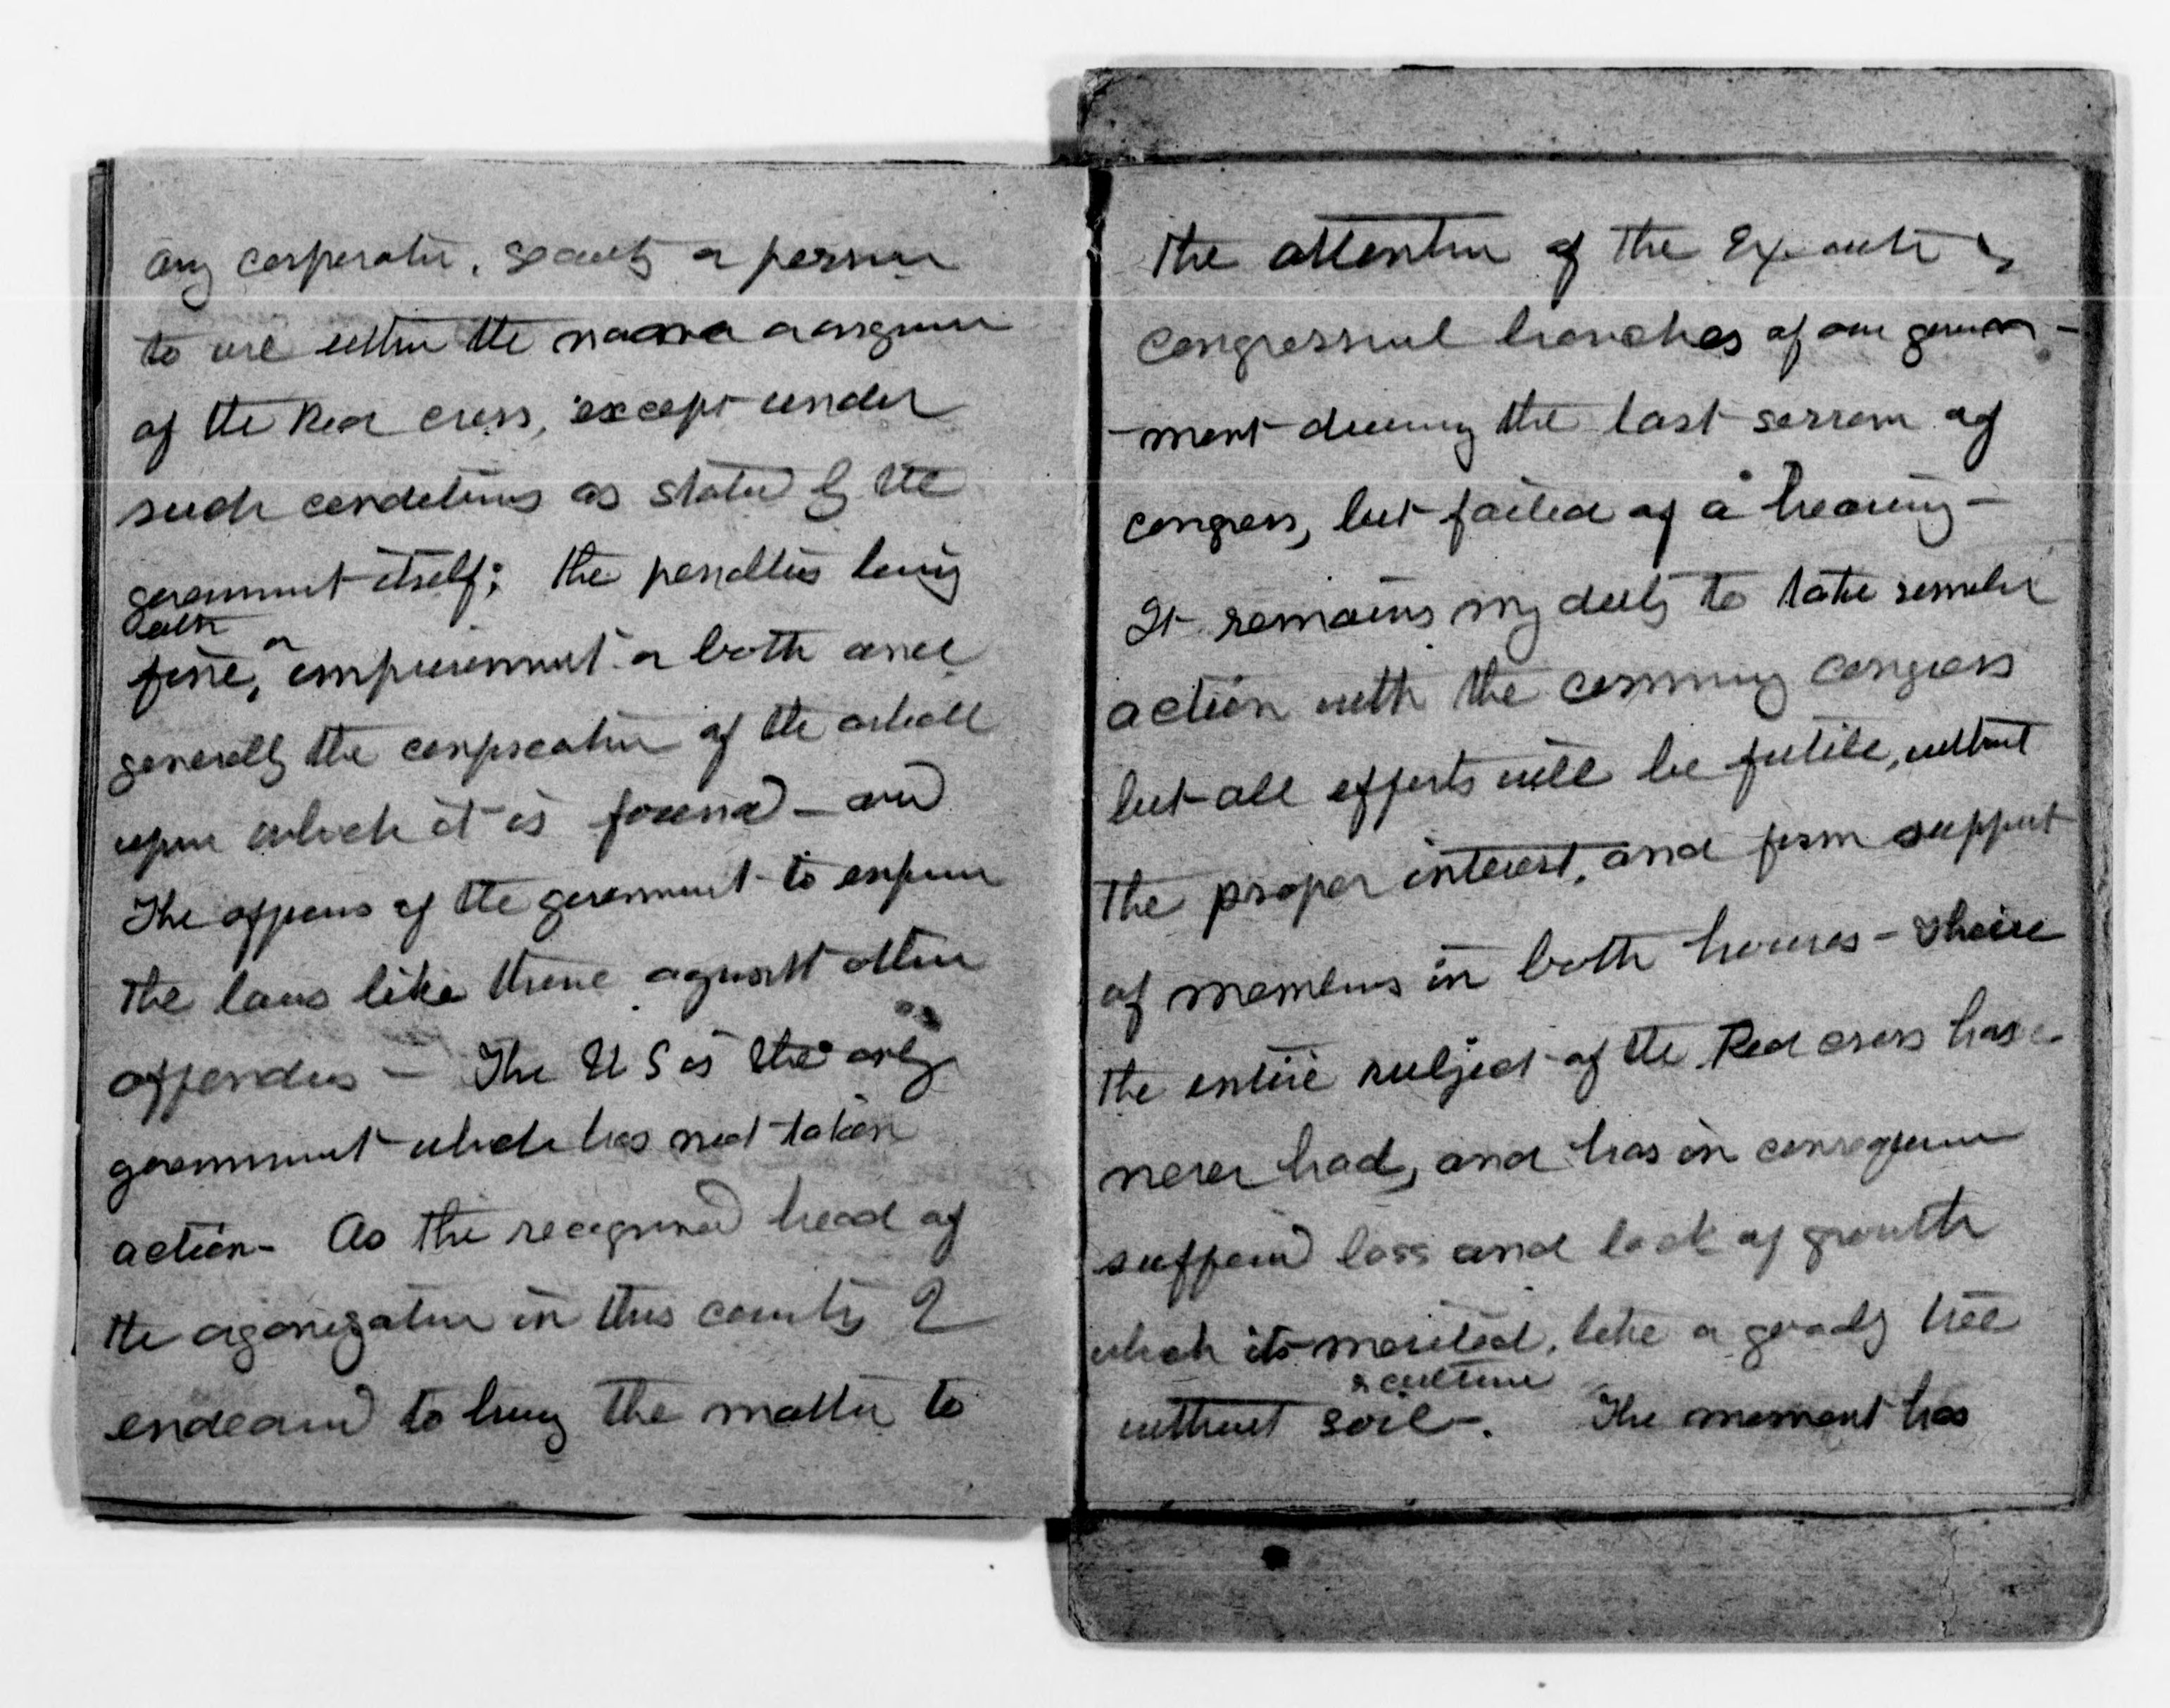 any corporation, society or person
to use either the name or insignia
of the Red cross, except under
such conditions as stated by the
government itself; the penalties being
either
fine, or imprisonment or both and
generally the confiscation of the article
upon which it is found - and
The officers of the government to enforce
the laws like those against other
offenders - The U S is the only
government which has not taken
action - As the recognized head of
the organization in this country I
endeavored to bring the matter to
the attention of the Executive &
congressional branches of our govern-
-ment during the last session of
congress, but failed of a hearing -
It remains my duty to take similar
action with the coming congress
but all efforts will be futile, without
the proper interest, and firm support
of members in both houses - These
the entire subject of the Red cross has
never had, and has in consequence
suffered loss and lack of growth
which its merited, like a goodly tree
& culture
without soil -. The moment has